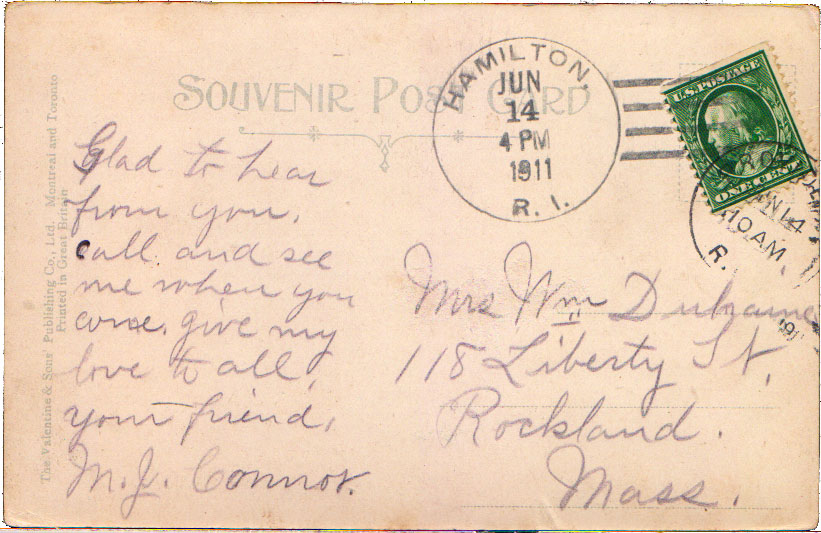 SOUVENIR POST CARD
HAMILTON,
JUN
14
4 PM
1911
R. I.
U.S. POSTAGE
ONE CENT
10 AM
R.
The Valentine & Sons' Publishing Co., Ltd., Montreal and Toronto
Printed in Great Britain
Glad to hear
from you,
call and see
me when you
come. give my
love to all,
your friend,
M. J. Connor.
Mrs Wm
118 Liberty St,
Rockland.
Mass.